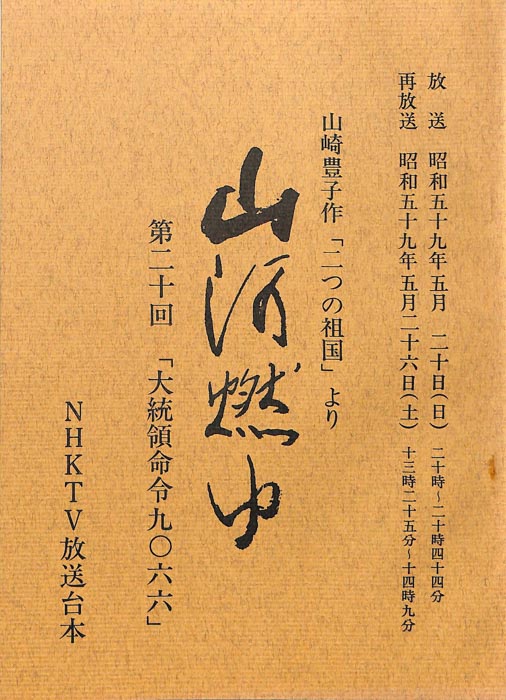 放送 昭和五十九年五月 二十日(日) 二十時~二十時四十四分
再放送 昭和五十九年五月二十六日(土) 十三時二十五分~十四時九分
山崎豊子作「二つの祖国」より
山河燃ゆ
第二十回 「大統領命令九〇六六」
NHKTV放送台本